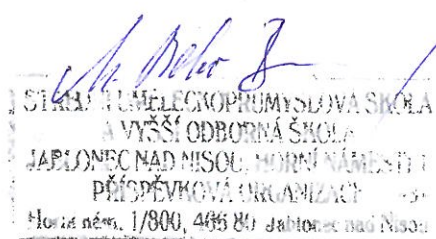 STŘEDNÍ UMĚLECKOPRŮMYSLOVÁ ŠKOLA
A VYŠŠÍ ODBORNÁ ŠKOLA
JABLONEC NAD NISOU, HORNÍ NÁMĚSTÍ 1
PŘÍSPĚVKOVÁ ORGANIZACE -3-
Horní nám. 1/800, 466 80 Jablonec nad Nisou